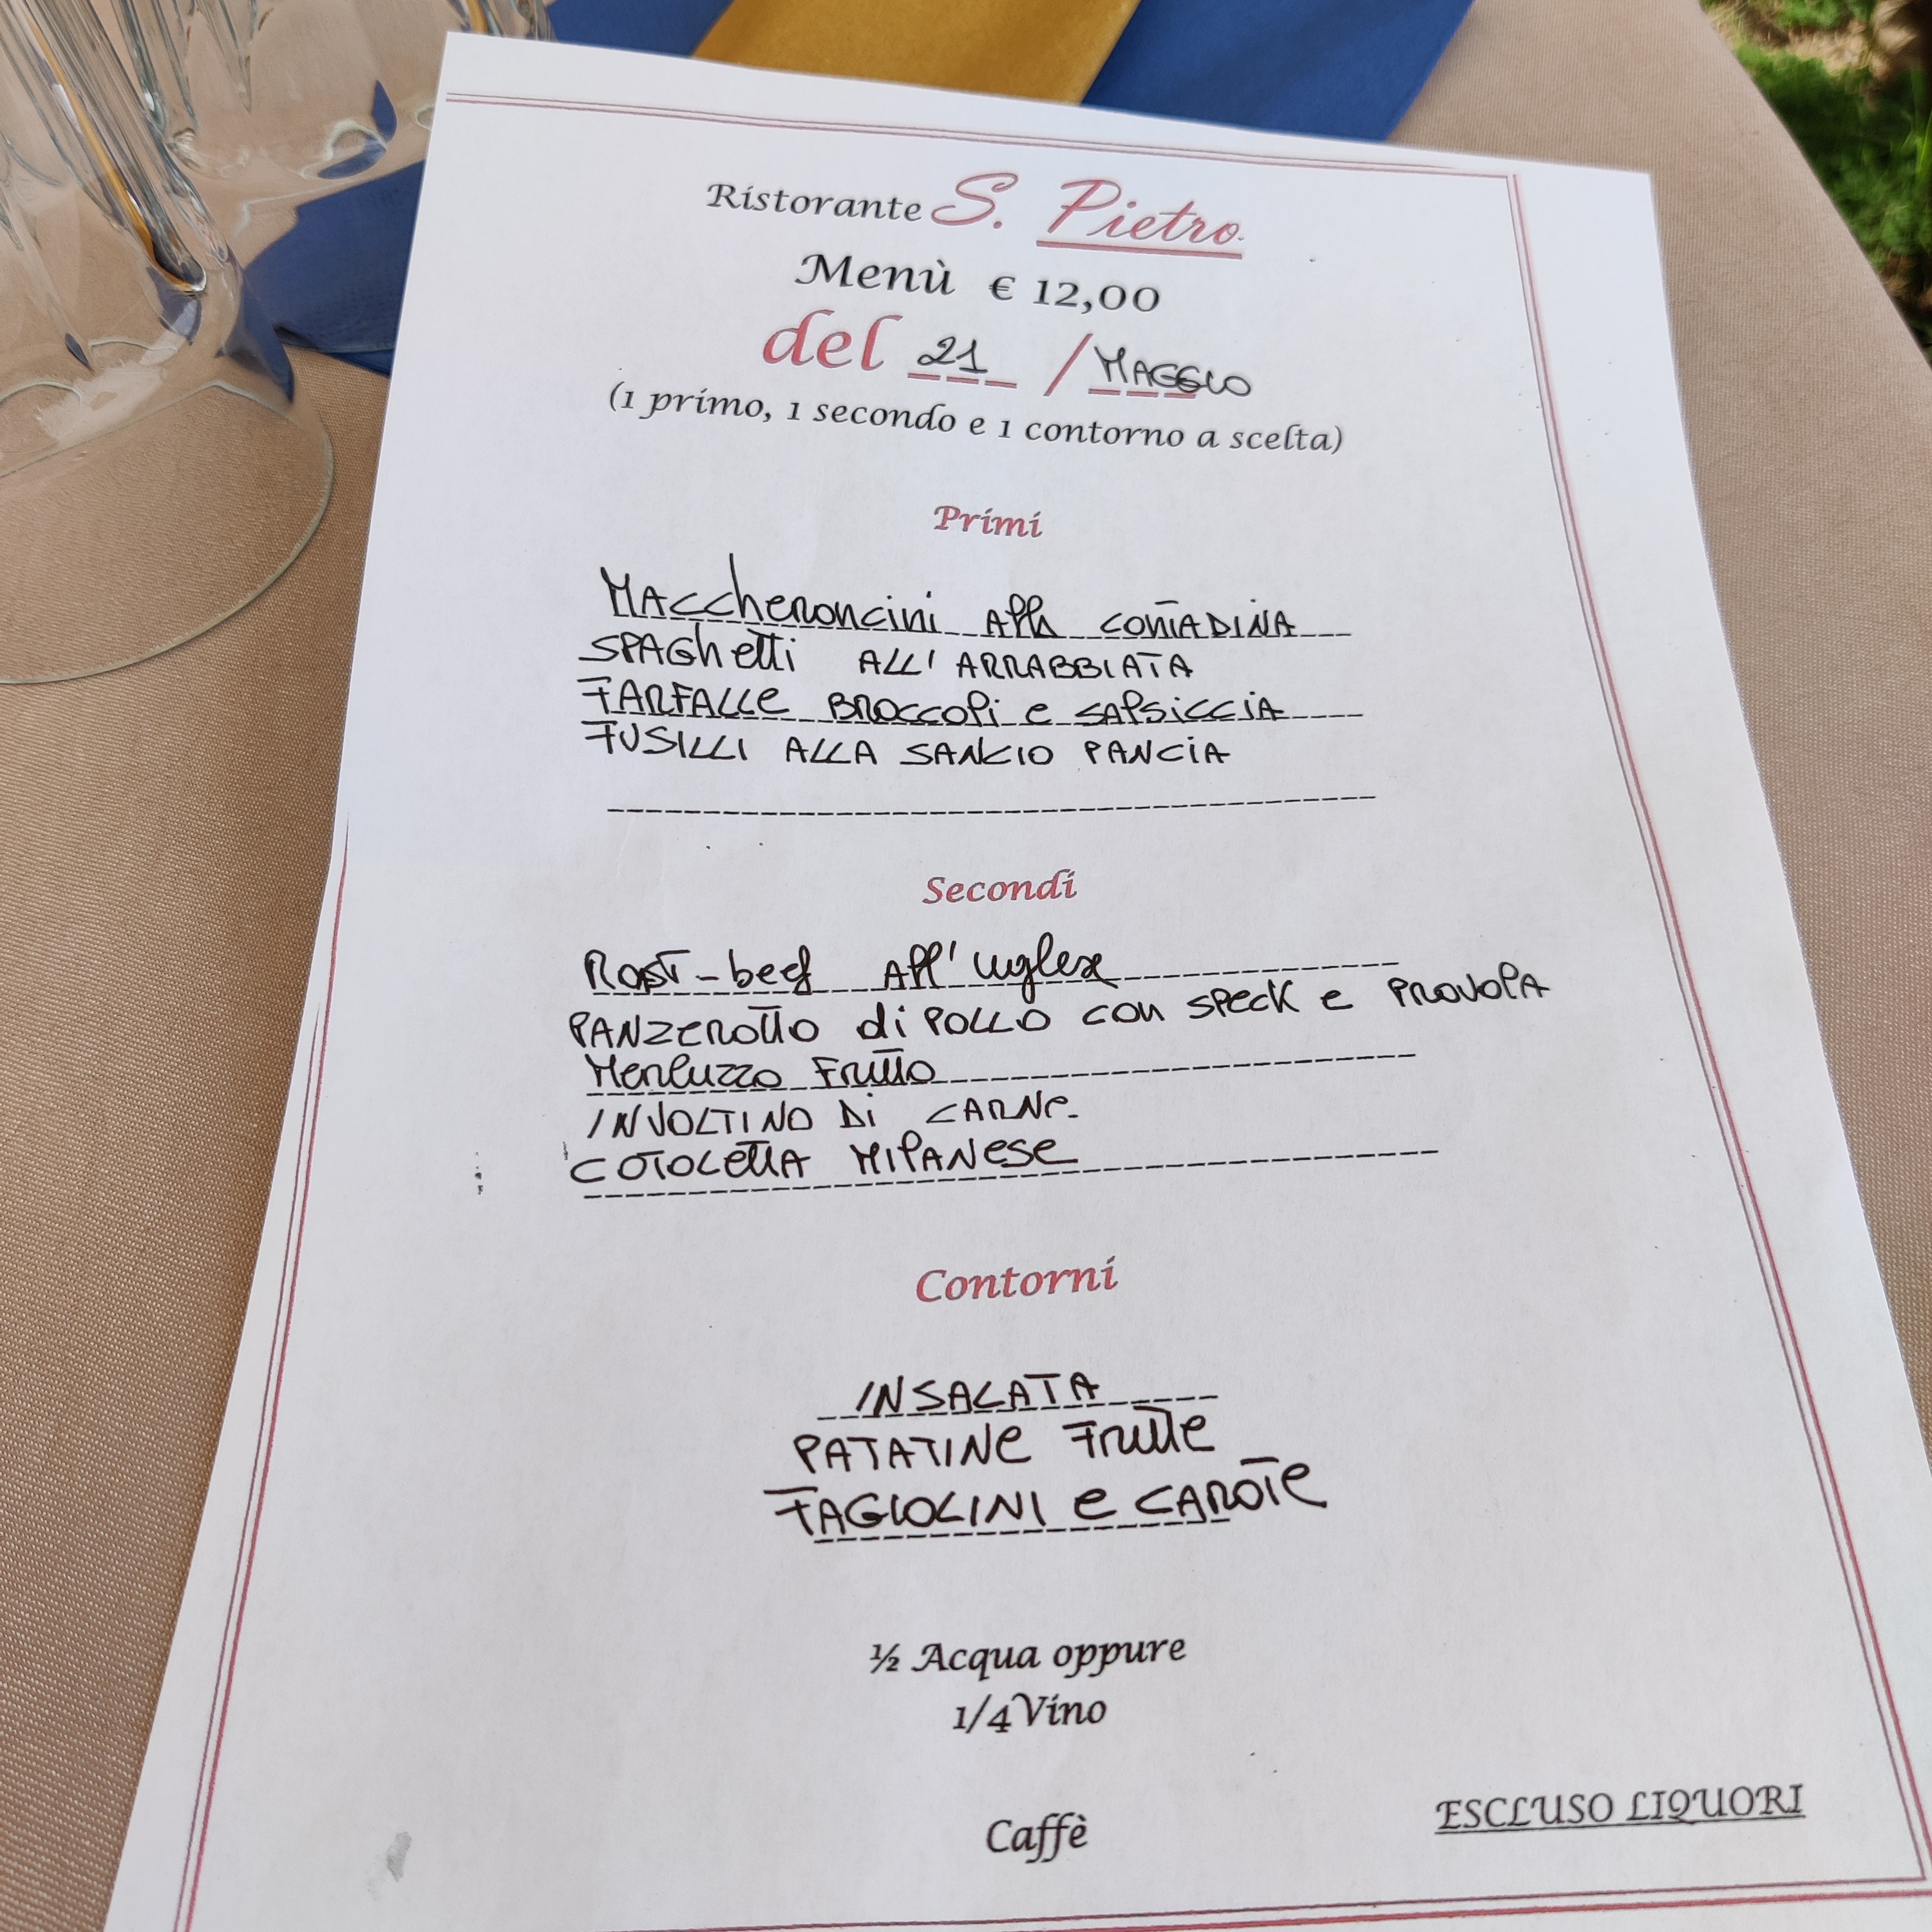 Ristorante S. Pietro
Menù € 12,00
del 21 / MAGGIO
(1 primo, 1 secondo e 1 contorno a scelta)
Primi
MAccheroncini Alla contADiNA
SPAGhetti ALL' ARRABBIATA
FARFALLe BRoccoli e SAlsicciA
FUSILLI ALLA SANCIO PANCiA
Secondi
RosT-beef All'inglese
PANZerotto di POLLO con SPecK e PRovolA
Merluzzo Fritto
INVOLTINO Di CARNe
COTOLettA MilANese
Contorni
INSALATA
PATATINe Fritte
FAGIOLINI e CAROTe
½ Acqua oppure
1/4 Vino
Caffè
ESCLUSO LIQUORI